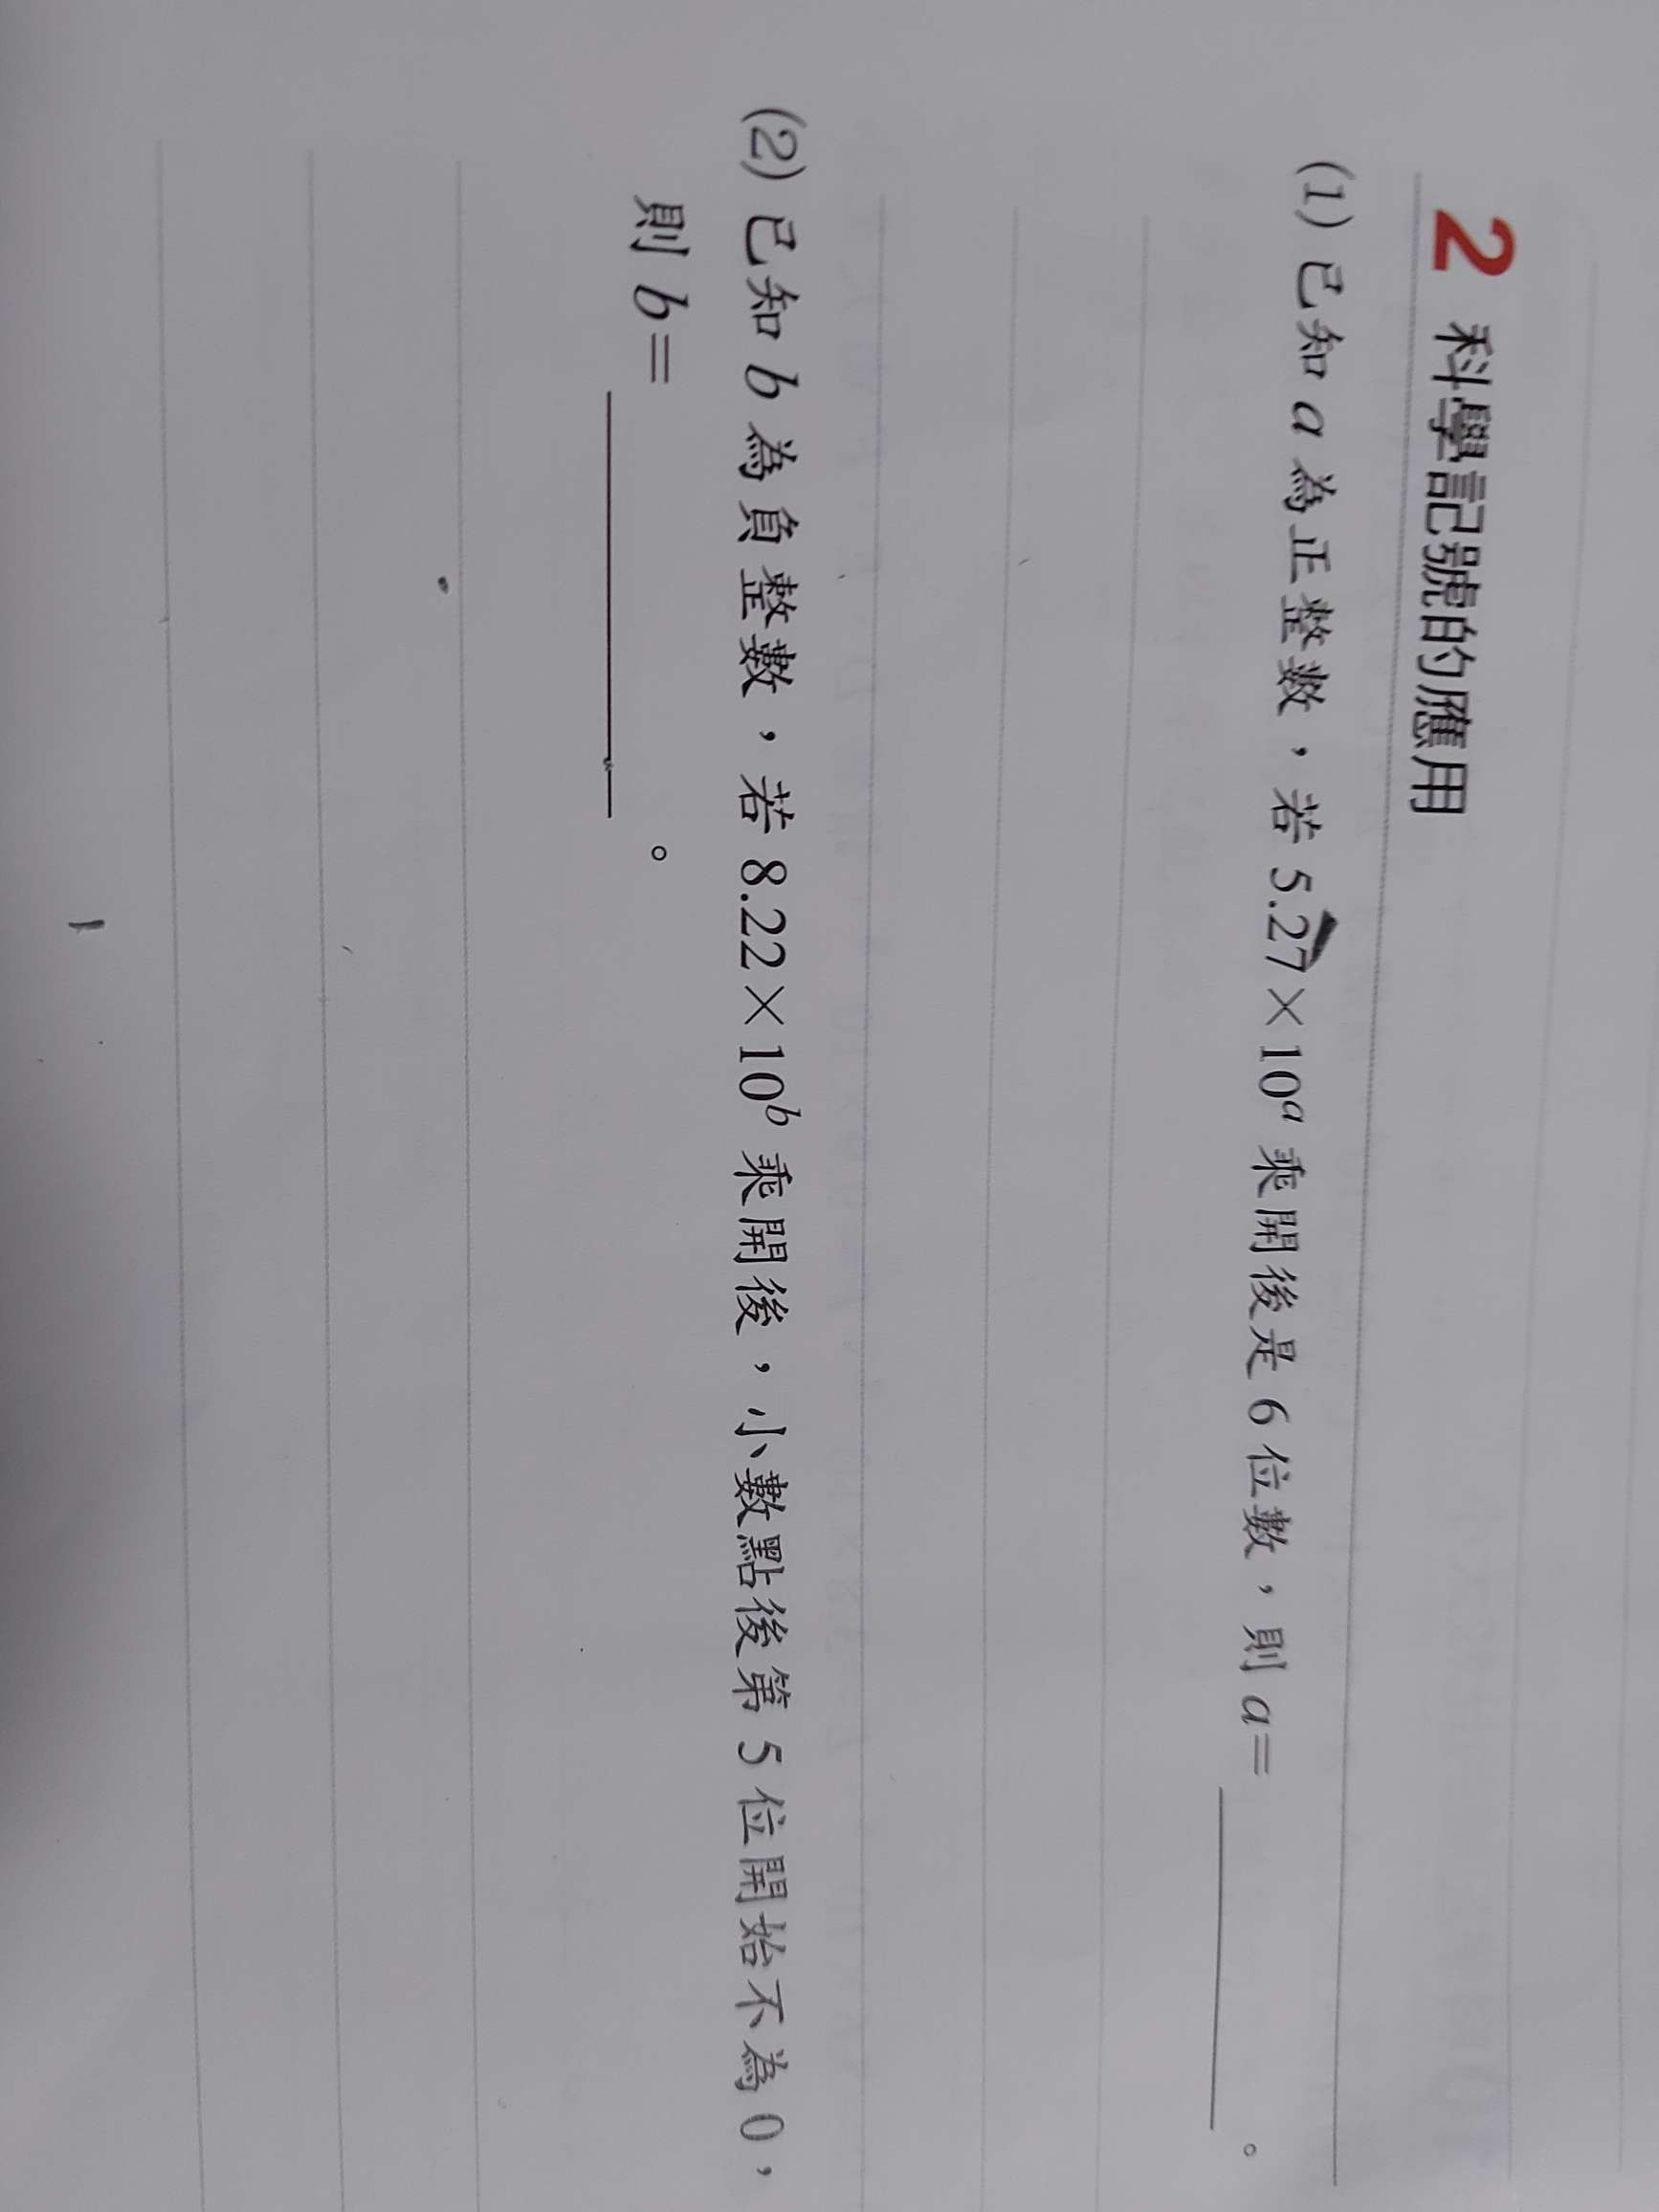 2 科學記號的應用
(1) 已知 a 為正整數，若 5.27×10ᵃ 乘開後是 6 位數，則 a=＿＿＿＿。
(2) 已知 b 為負整數，若 8.22×10ᵇ 乘開後，小數點後第 5 位開始不為 0，
則 b=＿＿＿＿。